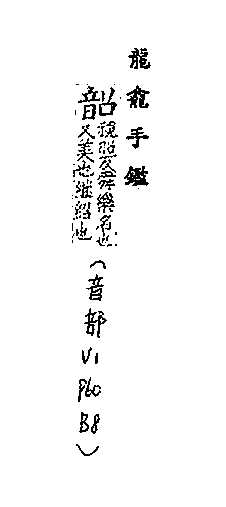 龍龕手鑑
韶視招反舜樂名也
又美也継紹也
(音部
V1
P60
B8)